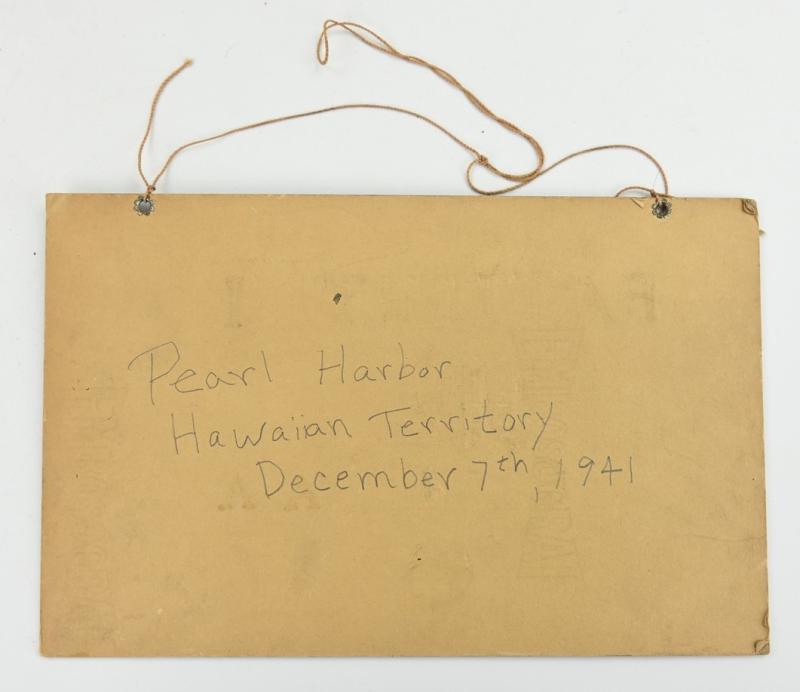 Pearl Harbor
Hawaiian Territory
December 7th, 1941